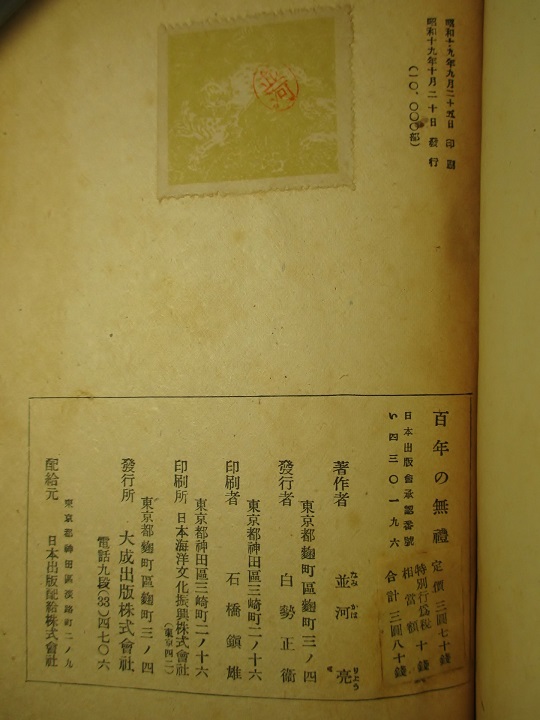 昭和十九年九月二十五日 印刷
昭和十九年十月二十日 發行
(一〇、〇〇〇部)
並河
百年の無禮
日本出版會承認番號
い四三〇一九六
定價 三圓七十錢
特別行爲税
相當額 十錢
合計 三圓八十錢
著作者 並河 亮
なみ かは りよう
東京都麴町區麴町三ノ四
發行者 白勢正衞
東京都神田區三崎町二ノ十六
印刷者 石橋鎭雄
東京都神田區三崎町二ノ十六
印刷所 日本海洋文化振興株式會社
(東京四二)
東京都麴町區麴町三ノ四
發行所 大成出版株式會社
電話九段(33)四七〇六
東京都神田區淡路町二ノ九
配給元 日本出版配給株式會社